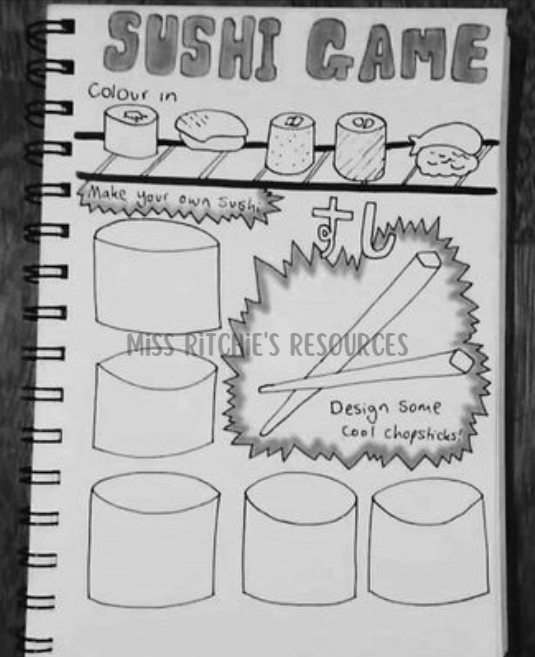 SUSHI GAME
Colour in
Make your own Sushi
すし
MISS RITCHIE'S RESOURCES
Design Some
Cool chopsticks!